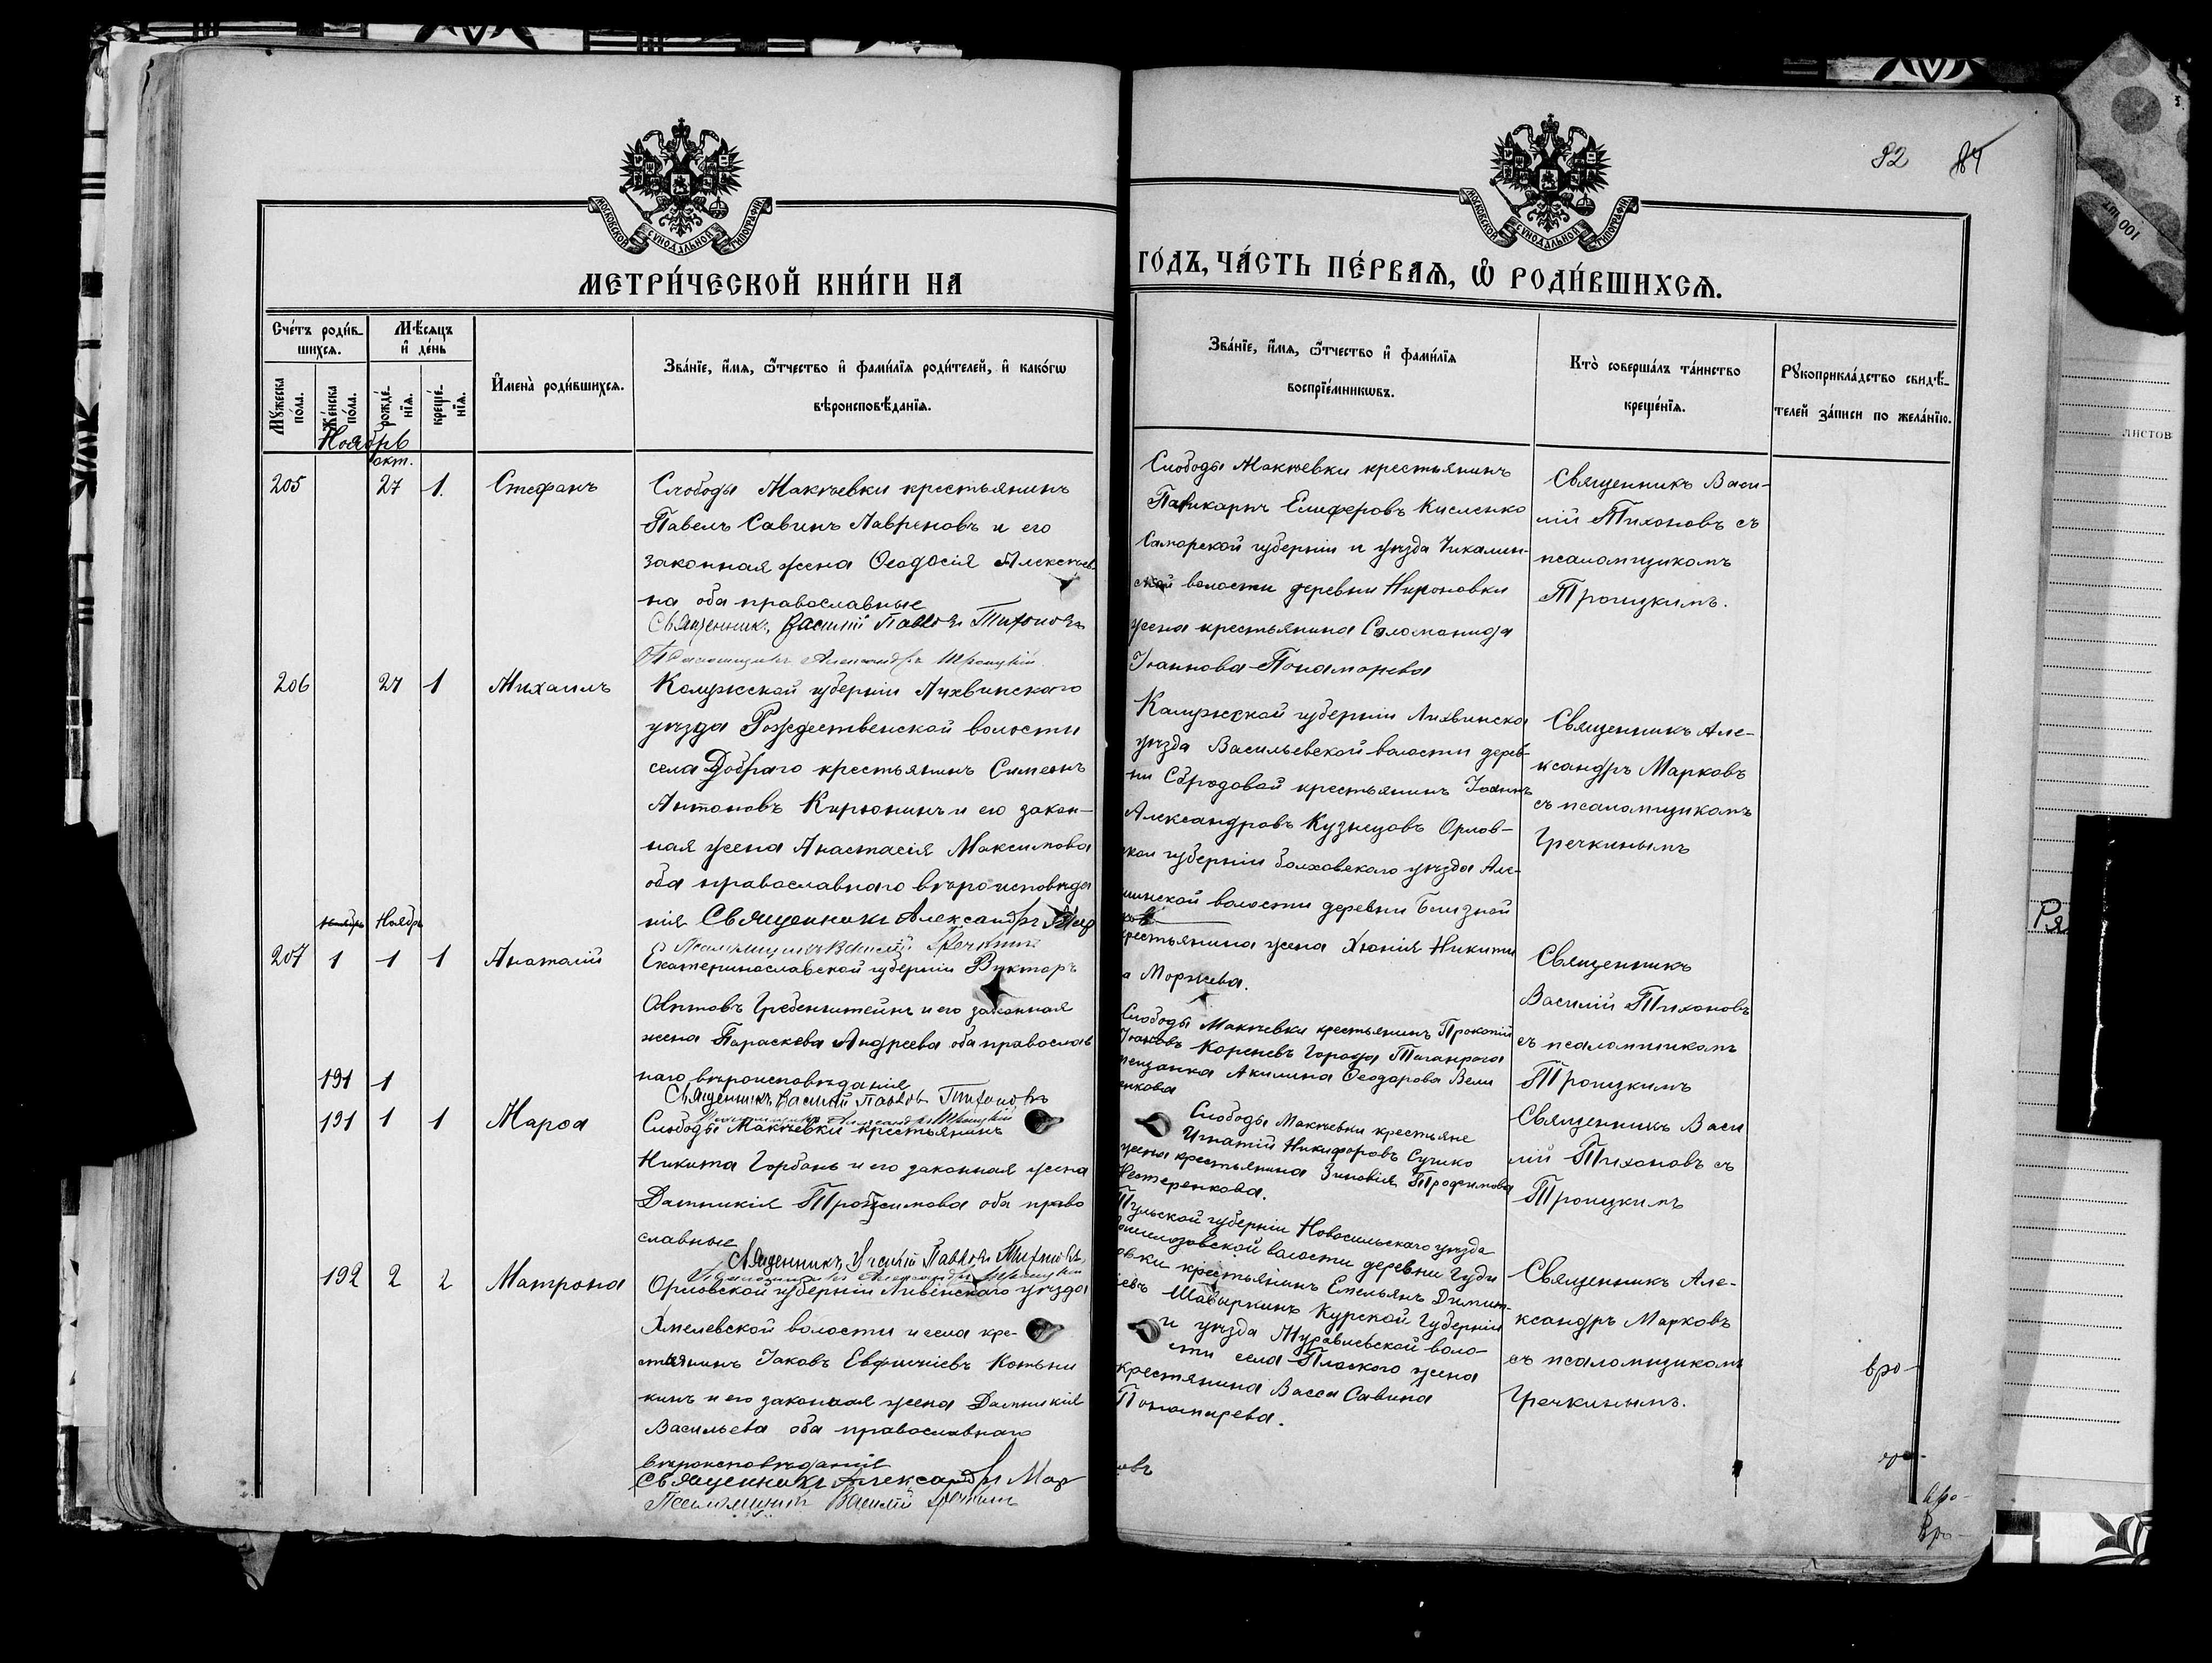 82 84
МОСКОВСКОЙ СѴНОДАЛЬНОЙ ТИПОГРАФІИ
МОСКОВСКОЙ СѴНОДАЛЬНОЙ ТИПОГРАФІИ
МЕТРИ́ЧЕСКОЙ КНИ́ГИ НА
ГО́ДЪ, ЧА́СТЬ ПЕ́РВАѦ, Ѡ҆ РОДИ́ВШИХСѦ.
Сче́тъ роди́в-
шихсѧ.
Мѣ́сѧцъ
и҆ де́нь
Мꙋ́жеска
по́ла.
Же́нска
по́ла.
рожде́-
нїѧ.
креще́-
нїѧ.
И҆мена̀ роди́вшихсѧ.
Зва́нїе, и҆́мѧ, ѻ҆́тчество и҆ фами́лїѧ роди́телей, и҆ како́гѡ
вѣроисповѣ́данїѧ.
Зва́нїе, и҆́мѧ, ѻ҆́тчество и҆ фами́лїѧ
воспрїе́мникѡвъ.
Кто̀ соверша́лъ та́инство
креще́нїѧ.
Рꙋкоприкла́дство свидѣ́-
телей за́писи по жела́нїю.
Ноябрь
окт.
205 27 1. Стефанъ
Слободы Макѣевки крестьянинъ
Павелъ Савинъ Лавреновъ и его
законная жена Ѳеодосія Алексѣев
на оба православные
Священникъ Василій Павловъ Тихоновъ
Псаломщикъ Александръ Троицкій
Слободы Макѣевки крестьянинъ
Поликарпъ Елиферовъ Кисленко
Самарской губерніи и уѣзда
волости деревни
жена крестьянина Соломонида
Іоаннова Понаморева
Священникъ Васи-
лій Тихоновъ съ
псаломщикомъ
Троицкимъ.
206 27 1 Михаилъ
Калужской губерніи Лихвинского
уѣзда Рождественской волости
села Добраго крестьянинъ Симеонъ
Антоновъ Кирюнинъ и его закон-
ная жена Анастасія Максимова
оба православнаго вѣроисповѣда
нія Священникъ Александръ Мар
Псаломщикъ Василій Гречкинъ
Калужской губерніи Лихвинско
уѣзда Васильевской волости дерев-
ни Сбродовой крестьянинъ Іоаннъ
Александровъ Кузнецовъ Орлов-
ской губерніи болховского уѣзда Але-
волости деревни Близной
крестьянина жена Хіонія Никити
а Моргнева.
Священникъ Але-
ксандръ Марковъ
съ псаломщикомъ
Гречкинымъ
ноябрь Ноябрь
207 1 1 1 Анатолій
Екатеринославской губерніи Викторъ
Гребенштейнъ и его законная
жена Параскева Андреева оба православ
наго вѣроисповѣданія
Священникъ Василій Павловъ Тихоновъ
Псаломщикъ Александръ Троицкій
Слободы Макѣевки крестьянинъ Прокопій
Іоановъ Кореневъ Города Таганрога
мещанка Акилина Ѳеодорова Вели
чкова
Священникъ
Василій Тихоновъ
съ псаломщикомъ
Троицкимъ
191 1
191 1 1 Марѳа
Слободы Макѣевки крестьянинъ
Никита Горбань и его законная жена
Домникія Трофимова оба право
славные
Священникъ Василій Павловъ Тихоновъ
Псаломщикъ Александръ Троицкій
Слободы Макѣевки крестьяне
Игнатій Никифоровъ Сучико
жена крестьянина Зиновія Трофимова
Нестеренкова.
Священникъ Васи
лій Тихоновъ съ
Троицкимъ
192 2 2 Матрона
Орловской губерніи Ливенского уѣзда
Хмелевской волости и села кре-
стьянинъ Іаковъ Евфиміевъ Котьни
кинъ и его законная жена Домникія
Васильева оба православнаго
вѣроисповѣданія
Священникъ Александръ Мар
Псаломщикъ Василій Гречкинъ
Тульской губерніи Новосильскаго уѣзда
волости деревни Гуди
овки крестьянинъ Емельянъ Димит-
іевъ Шавыркинъ Курской Губерніи
и уѣзда Муравлевской воло-
сти села Плоского жена
крестянина Васса Савина
Пономарева.
овъ
Священникъ Але-
ксандръ Марковъ
съ псаломщикомъ
Гречкинымъ.
вро-
вро-
вро-
листов
Ря
100 шт